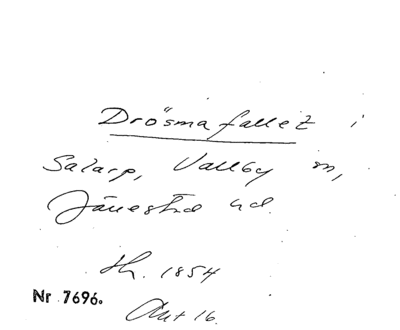 Drösmafallet i
Salarp, Vallby sn,
Järrestad hd.
Sk. 1854
Nr 7696.
Akt 16.